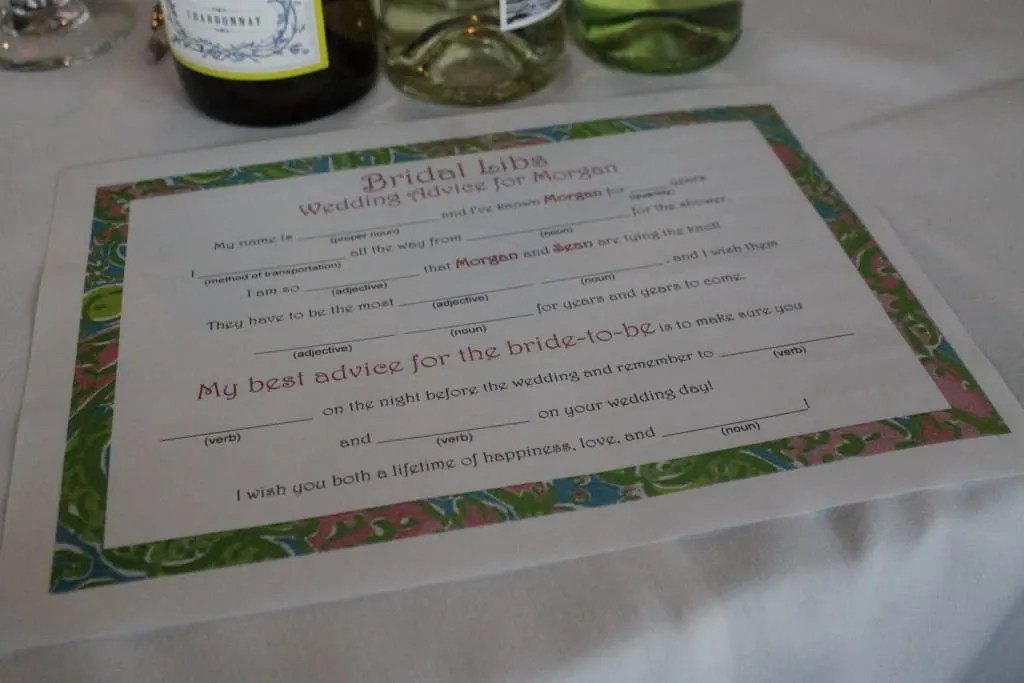 CHARDONNAY
Bridal Libs
Wedding Advice for Morgan
My name is ____________ and I've known Morgan for ______ years
(proper noun) (quantity)
I ____________ all the way from ____________ for the shower.
(method of transportation) (noun)
I am so ____________ that Morgan and Sean are tying the knot!
(adjective)
They have to be the most ____________ ____________, and I wish them
(adjective) (noun)
____________ ____________ for years and years to come.
(adjective) (noun)
My best advice for the bride-to-be is to make sure you
____________ on the night before the wedding and remember to ____________
(verb) (verb)
and ____________ on your wedding day!
(verb)
I wish you both a lifetime of happiness, love, and ____________!
(noun)